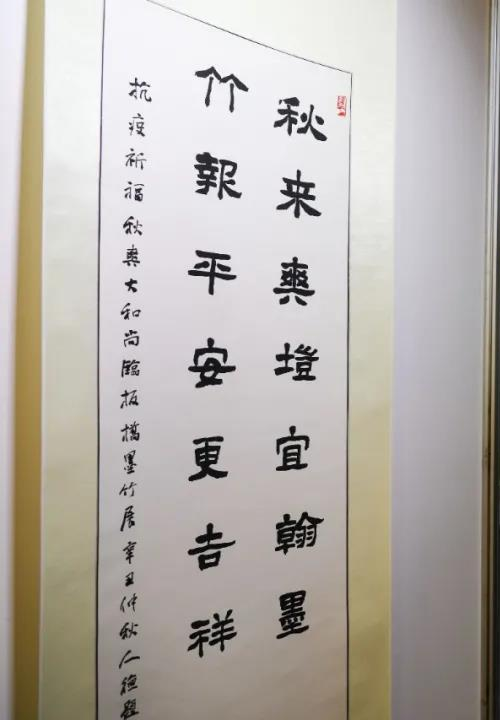 秋来爽塏宜翰墨
竹報平安更吉祥
抗疫祈福秋爽大和尚臨板橋墨竹展辛丑仲秋人德題